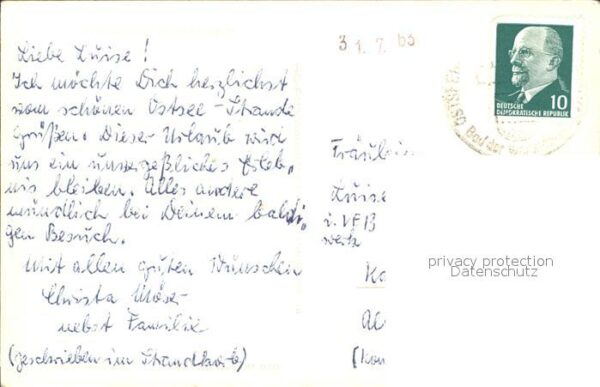 Liebe Luise!
Ich möchte Dich herzlichst
vom schönen Ostsee-Strande
grüßen. Dieser Urlaub wird
uns ein unvergeßliches Erleb-
nis bleiben. Alles andere
mündlich bei Deinem baldi-
gen Besuch.
Mit allen guten Wünschen
Christa Möser
nebst Familie
(geschrieben im Strandkorb)
31.7.63
DEUTSCHE
DEMOKRATISCHE REPUBLIK
10
OSTSEE
Bad der
Fräulein
Luise
i. VEB
Ko
(Kon
privacy protection
Datenschutz